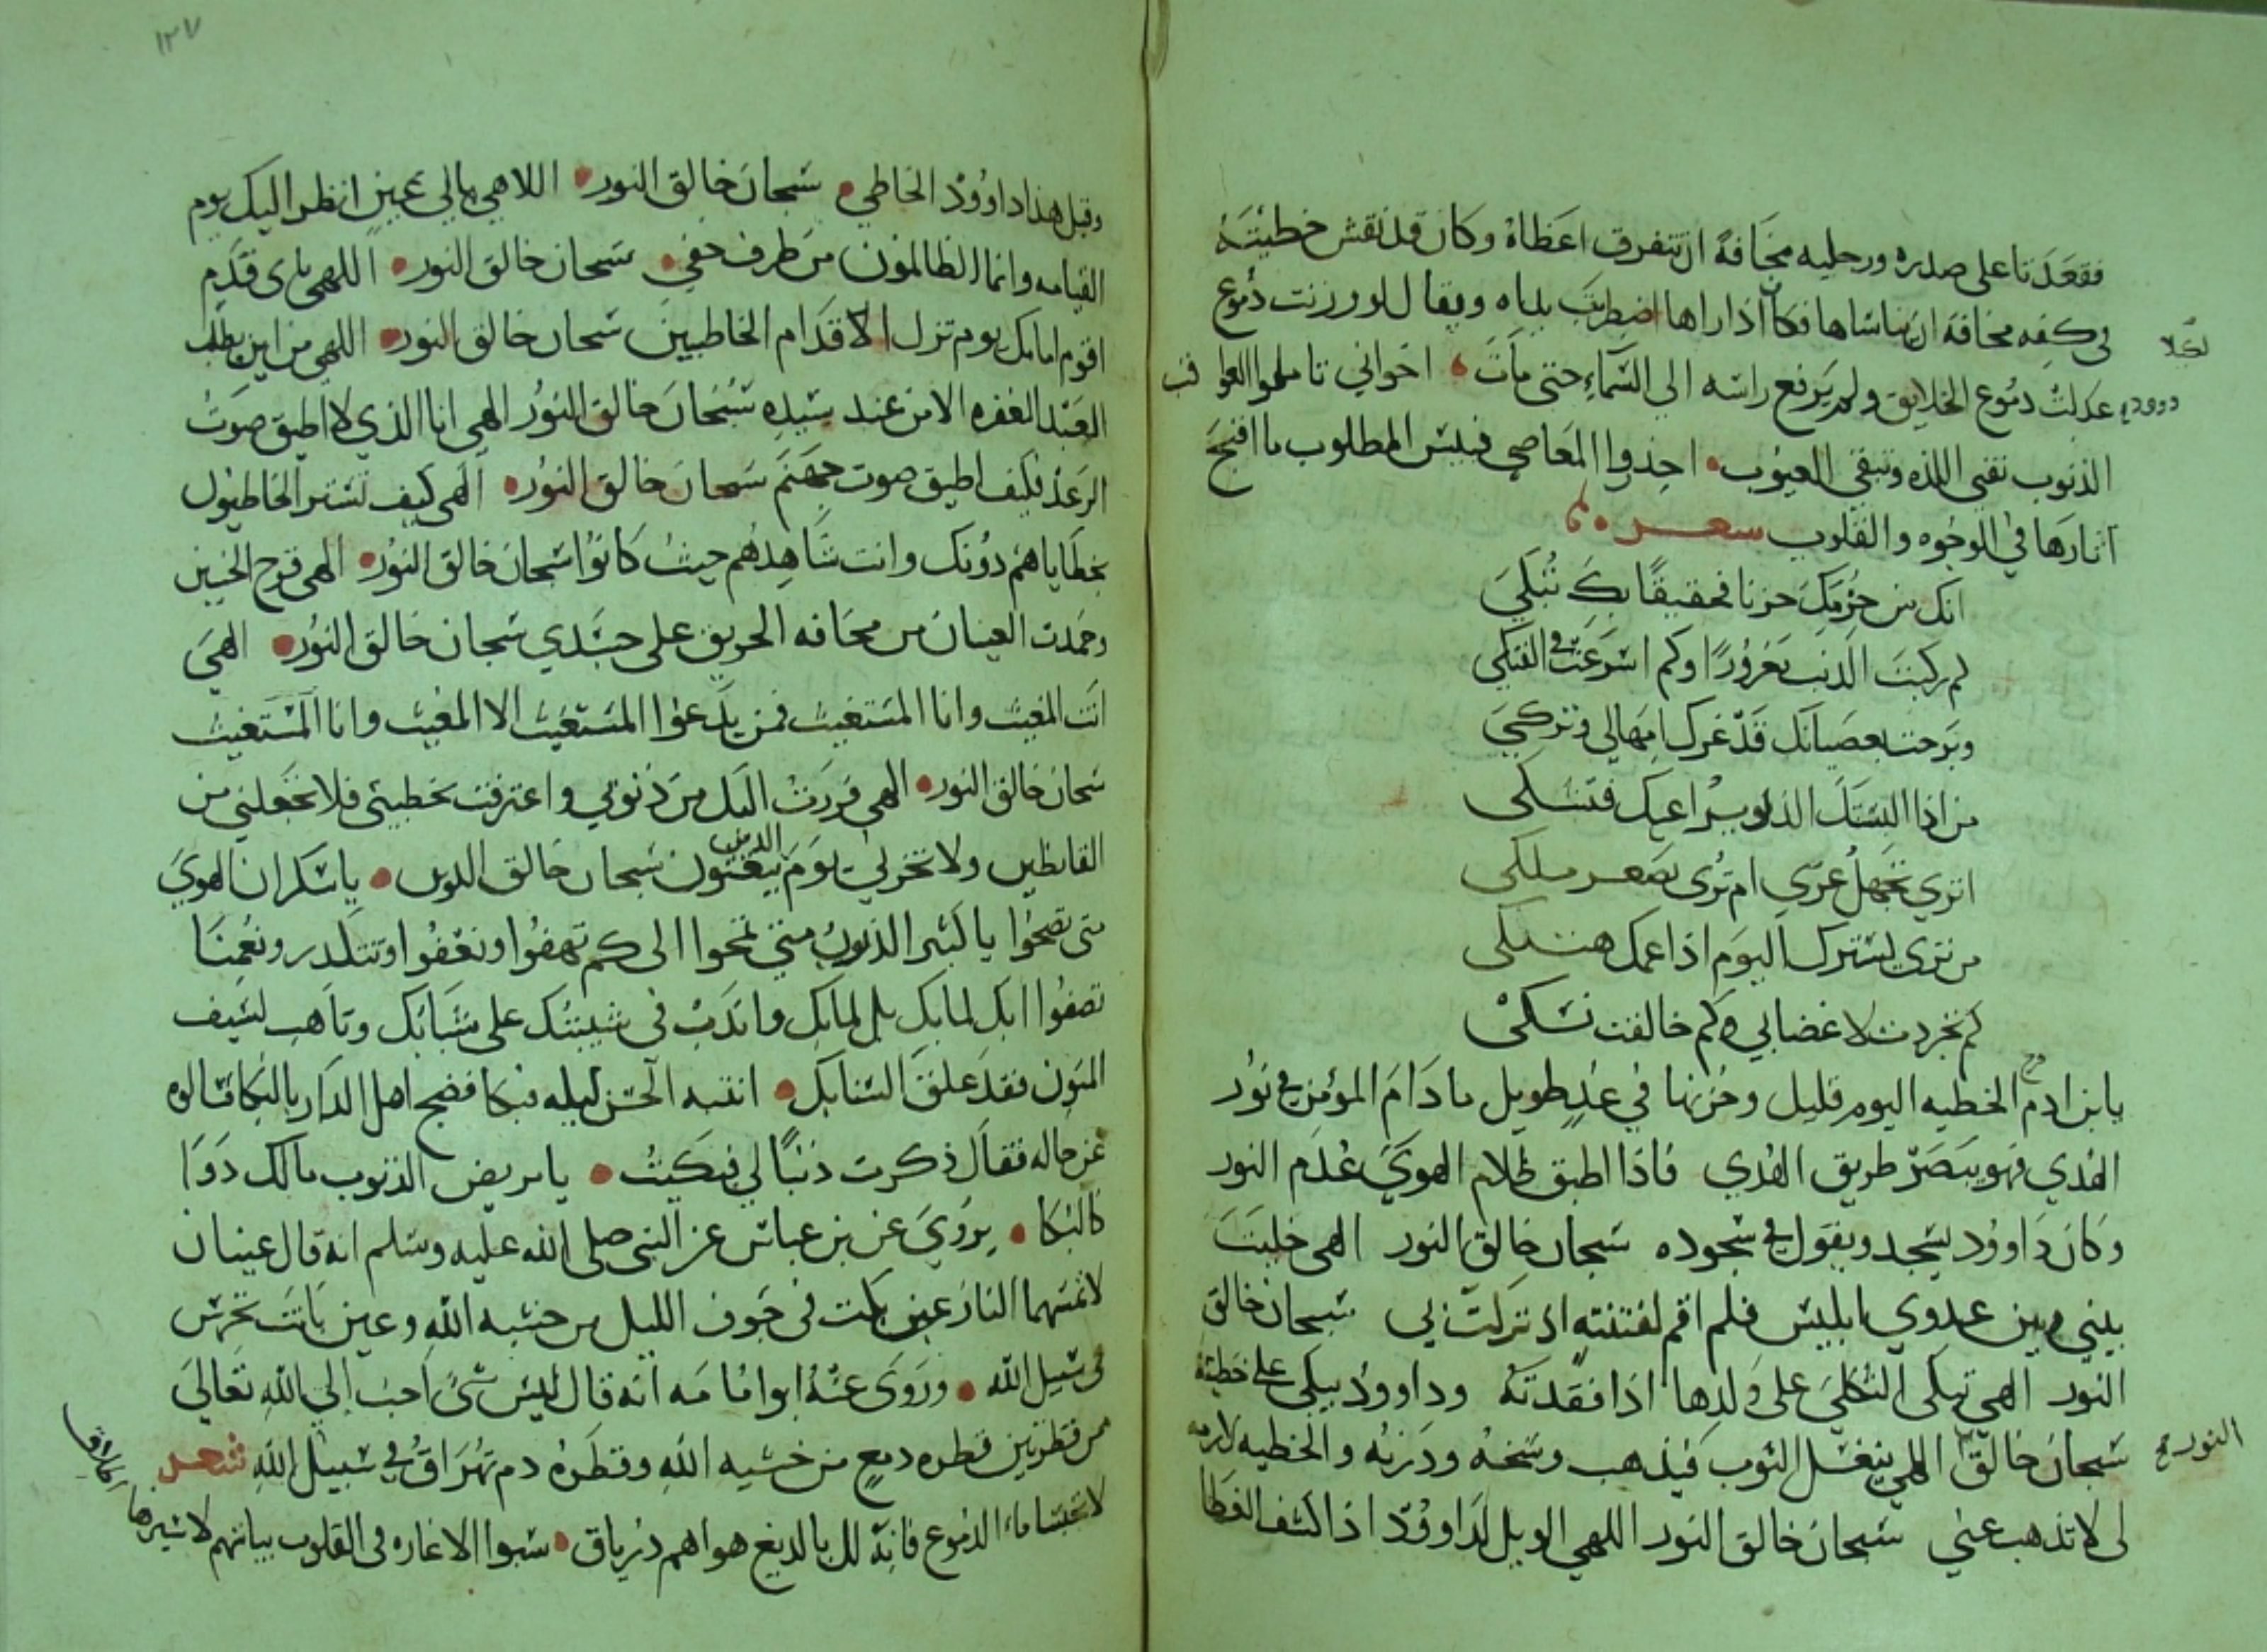 فقعدتا على صدره ورجليه مخافة ان تتفرق اعظاه وكان قد نقش خطيئته
في كفه مخافة ان يناساها فكان اذا راها اضطربت يداه ويقال لو وزنت دموع
لكلا
داوود عدلت دموع الخلايق ولم يرفع راسه الي السماء حتى مات اخواني تاملوا العواقب
الذنوب تفني اللذه وتبقي العيوب احذروا المعاصي فبيس المطلوب ما اقبح
اثارها في الوجوه والقلوب شعر
انك من حزمك حزنا فحقيقا بك تبكي
لم ركبت الذنب مغرورا وكم اسرعت في الفتكي
وبرحت بعصيانك قد غرك امهالي وتركي
من اذا البستك الذل
اتري تجهل عزي ام تري تصعر ملكي
من تري يسترك اليوم اذا عمك هتكي
كم تجردت لاغضابي وكم خالفت نسكي
يا بن ادم الخطيه اليوم قليل وحزنها في غد طويل ما دام المؤمن في نور
الهدي فهو يبصر طريق الهدي فاذا اطبق ظلام الهوي عدم النور
وكان داوود يسجد ويقول في سجوده سبحان خالق النور الهي خليت
بيني وبين عدوي ابليس فلم اقم لفتنته اذ نزلت بي سبحان خالق
النور الهي تبكي الثكلي على ولدها اذا فقدته وداوود يبكي على خطيئه
سبحان خالق النور الهي يغسل الثوب فيذهب وسخه ودرنه والخطيه لازمه
لي لا تذهب عني سبحان خالق النور اللهي الويل لداوود اذا كشف الغطا
١٢٧
وقيل هذا داوود الخاطي سبحان خالق النور اللاهي باي عين انظر اليك يوم
القيامه وانما الظالمون من طرف خفي سبحان خالق النور اللهي باي قدم
اقوم امامك يوم تزل الاقدام الخاطيين سبحان خالق النور اللهي من اين يطلب
العبد الغفره الا من عند سيده سبحان خالق النور الهي انا الذي لا اطيق صوت
الرعد فكيف اطيق صوت جهنم سبحان خالق النور الهي كيف تستر الخاطيون
بخطاياهم دونك وانت شاهدهم حيث كانوا سبحان خالق النور الهي قرح الجبين
وجمدت العينان من مخافه الحريق على جسدي سبحان خالق النور الهي
انت المغيث وانا المستغيث فمن يدعوا المستغيث الا المغيث وانا المستغيث
سبحان خالق النور الهي فررت اليك من ذنوبي واعترفت بخطيئتي فلا تجعلني من
القانطين ولا تخزني يوم الدين يبعثون سبحان خالق النور يا سكران الهوي
متى تصحوا يا كثير الذنوب متى تمحوا الى كم تهفوا وتغفوا وتتكدر ونعمنا
تصفوا ابك لما بك بل لمابك واندب في شيبتك على شبابك وتاهب لسيف
المنون فقد علق الشبابك انتبه الحسن ليله فبكا فضج اهل الدار بالبكا فسالوه
عن حاله فقال ذكرت ذنبا لي فبكيت يا مريض الذنوب مالك دوا
كالبكا يروي عن بن عباس عن النبي صلى الله عليه وسلم انه قال عينان
لا تمسهما النار عين بكت في جوف الليل من خشيه الله وعين باتت تحرس
في سبيل الله وروى عنه ابوا مامه انه قال ليس شئ احب الي الله تعالي
من قطرتين قطره دمع من خشيه الله وقطره دم تهراق في سبيل الله شعر
لا تحبسا ماء الدموع فانه لك يا لديغ هواهم درياق شنوا الاغاره في القلوب بيانهم لاسيرها